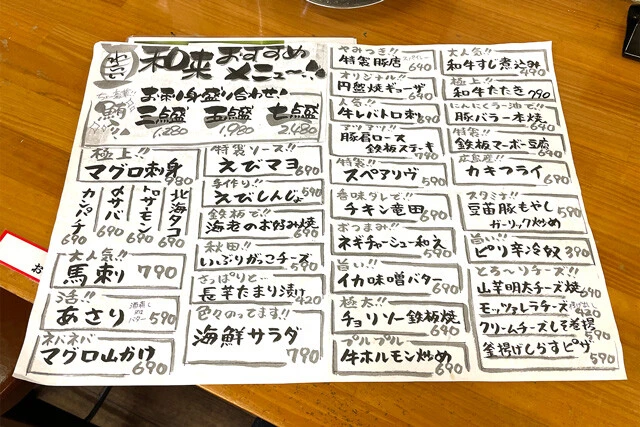 和来おすすめ
メニュー!!
お刺し身盛り合わせ!
三点盛
1,280
五点盛
1,980
七点盛
2,480
極上!!
マグロ刺身
980
カンパチ
690
〆サバ
590
トロサーモン
590
北海タコ
590
大人気!!
馬刺
790
活!!
あさり
酒蒸し
or
バター
590
ネバネバ
マグロ山かけ
690
特製ソース!!
えびマヨ
690
手作り!!
えびしんじょ
590
鉄板で!!
海老のお好み焼
690
秋田!!
いぶりがっこチーズ
590
さっぱりと〜
長芋たまり漬け
420
色々のってます!!
海鮮サラダ
790
やみつき!!
特製豚店
690
オリジナル!!
円盤焼ギョーザ
640
人気!!
牛レバトロ刺
890
アツアツ!!
豚肩ロース
鉄板ステーキ
790
特製!!
スペアリヴ
590
香味タレで!!
チキン竜田
690
おつまみ!!
ネギチャーシュー和え
590
旨い!!
イカ味噌バター
690
極太!!
チョリソー鉄板焼
640
プルプル
牛ホルモン炒め
690
大人気!!
和牛すじ煮込み
490
極上!!
和牛たたき
790
にんにくラー油で!!
豚バラ一本焼
640
特製!!
鉄板マーボー豆腐
640
広島産!!
カキフライ
690
スタミナ!!
豆苗豚もやし
ガーリック炒め
590
旨い!!
ピリ辛冷奴
390
とろ〜りチーズ!!
山芋明太チーズ焼
690
モッツァレラチーズ
430
クリームチーズしそ春揚
590
釜揚げしらすピザ
590
お